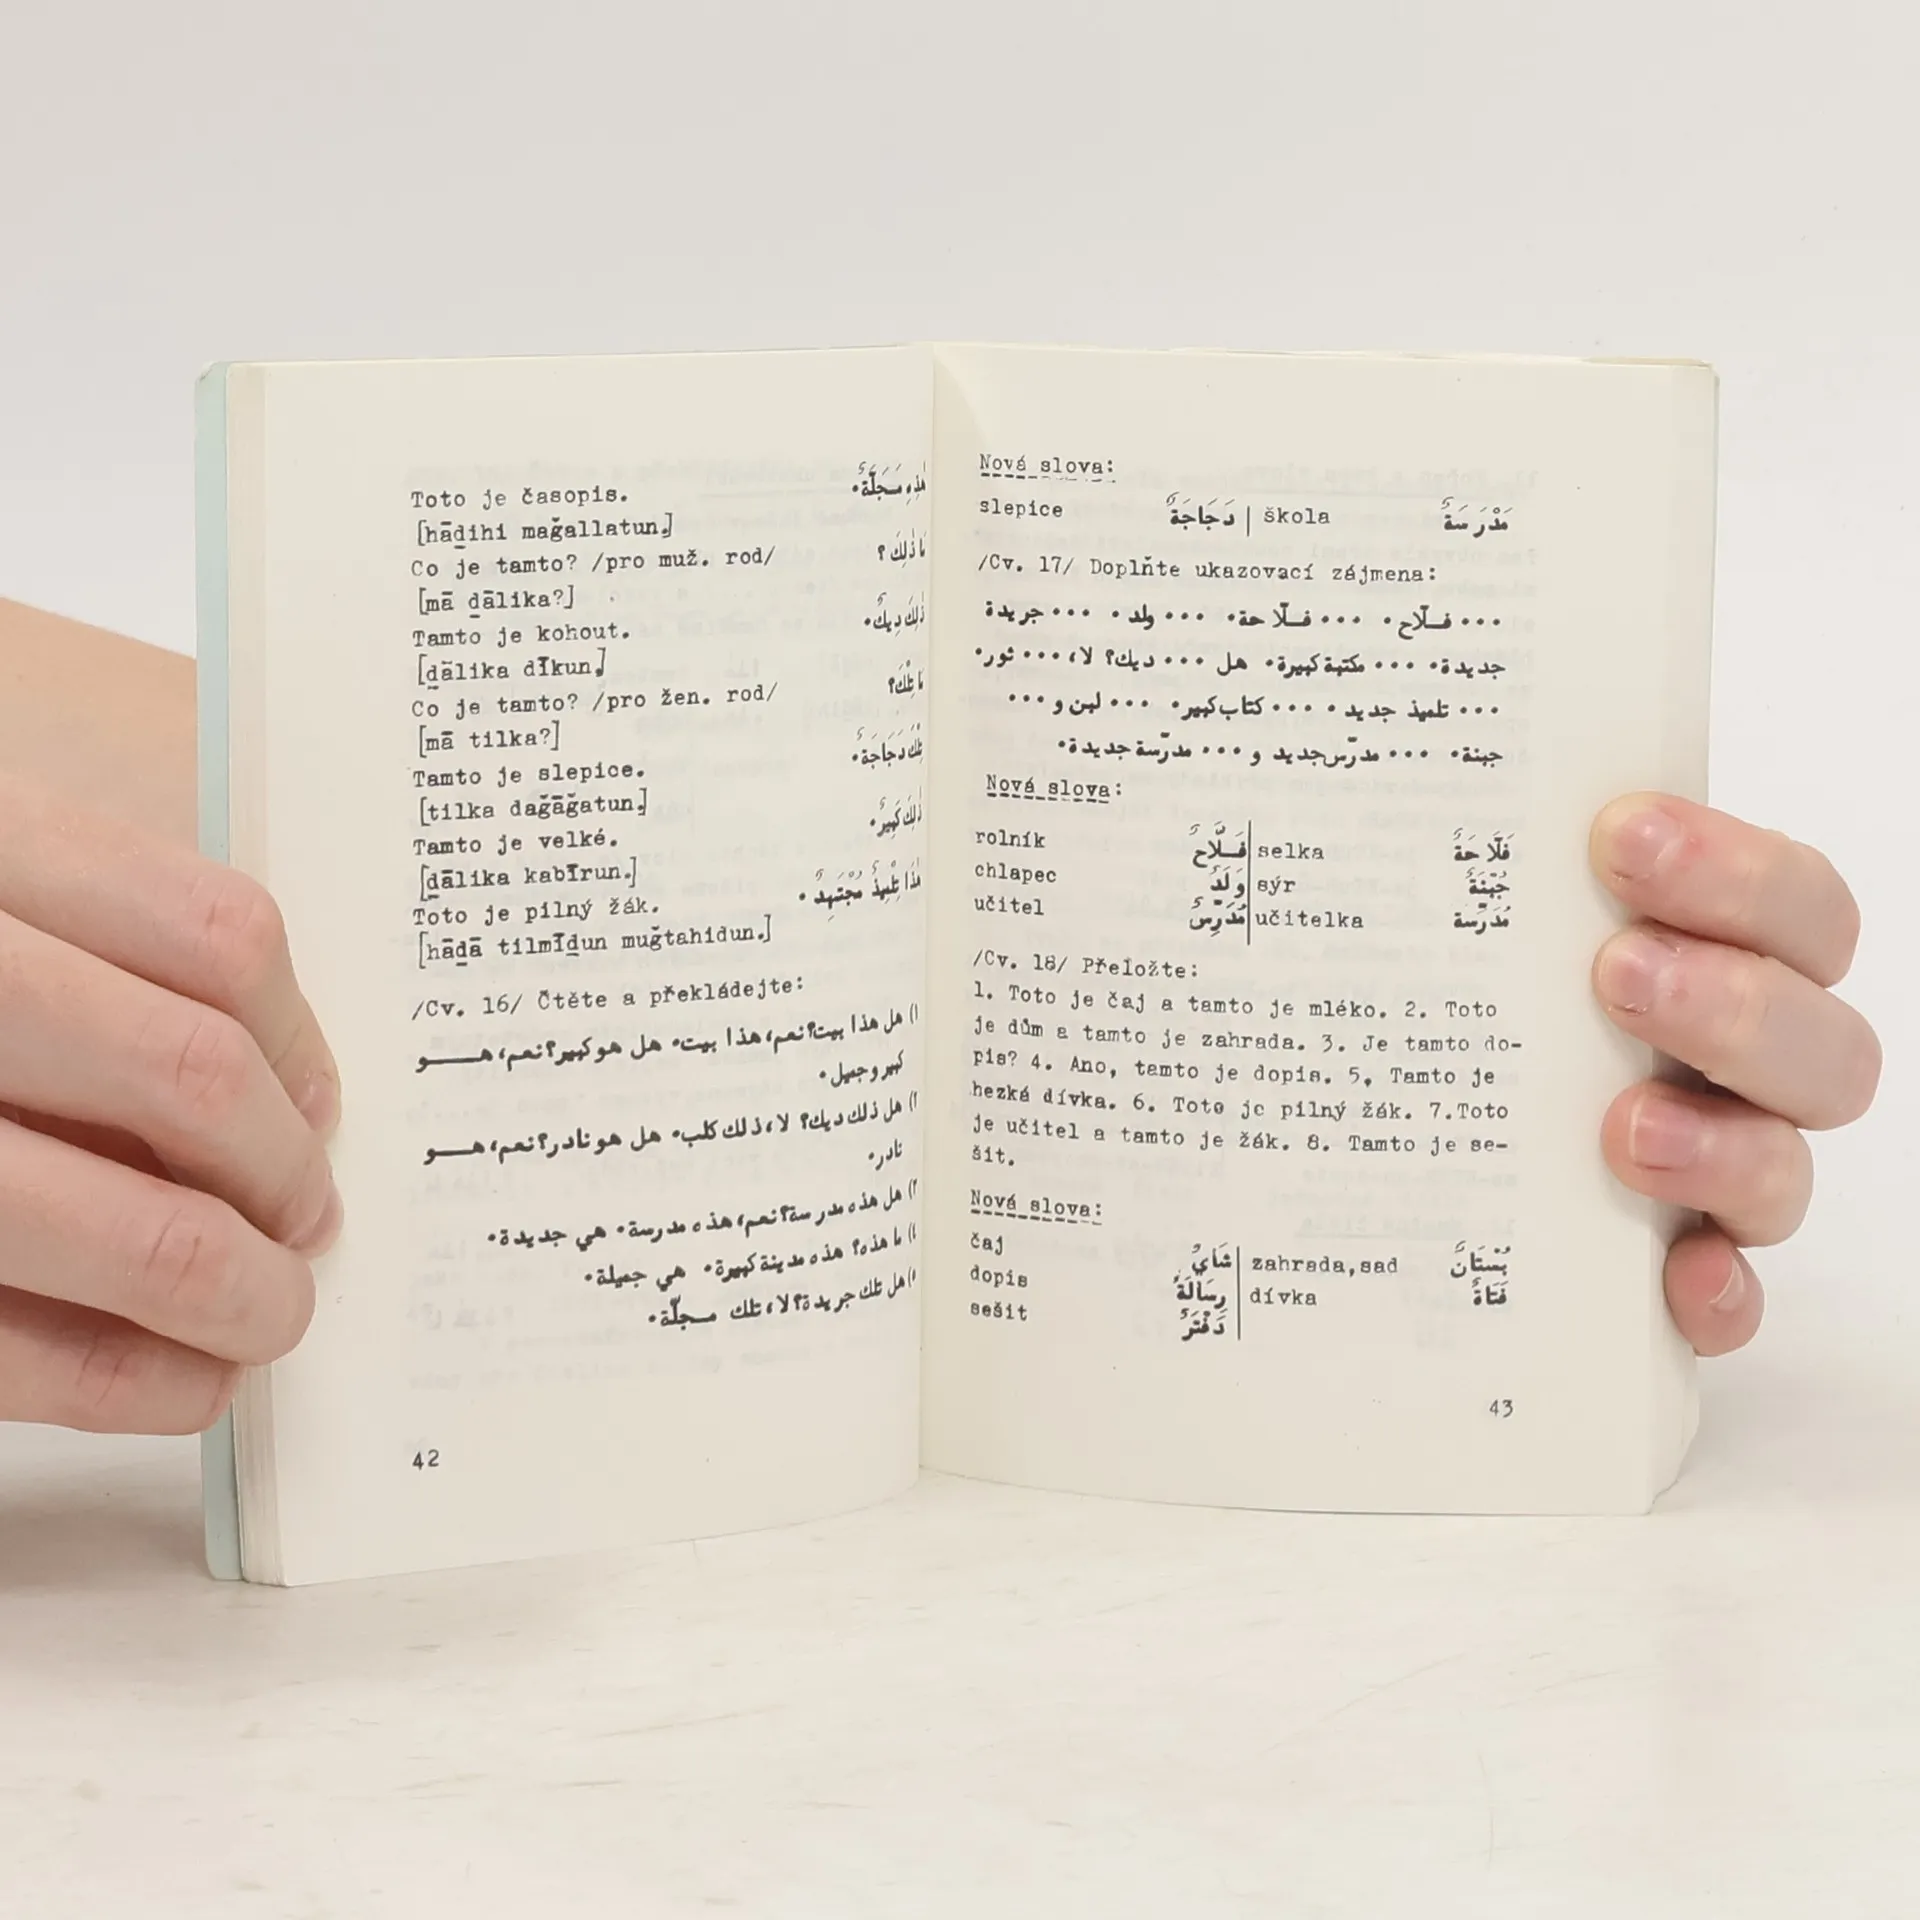 Toto je časopis. هٰذِهِ مَجَلَّةٌ.
[hāḏihi mağallatun.]
Co je tamto? /pro muž. rod/ مَا ذٰلِكَ ؟
[mā ḏālika?]
Tamto je kohout. ذٰلِكَ دِيكٌ.
[ḏālika dīkun.]
Co je tamto? /pro žen. rod/ مَا تِلْكَ؟
[mā tilka?]
Tamto je slepice. تِلْكَ دَجَاجَةٌ.
[tilka dağāğatun.]
Tamto je velké. ذٰلِكَ كَبِيرٌ.
[ḏālika kabīrun.]
Toto je pilný žák. هٰذَا تِلْمِيذٌ مُجْتَهِدٌ .
[hāḏā tilmīḏun muğtahidun.]
/Cv. 16/ Čtěte a překládejte:
١) هل هذا بيت؟ نعم، هذا بيت. هل هو كبير؟ نعم، هــو
كبير و جميل.
٢) هل ذلك ديك؟ لا، ذلك كلب. هل هو نادر؟ نعم، هــو
نادر.
٣) هل هذه مدرسة؟ نعم، هذه مدرسة. هي جديدة.
٤) ما هذه؟ هذه مدينة كبيرة. هي جميلة.
٥) هل تلك جريدة؟ لا، تلك مـجلّة.
42
Nová slova:
slepice دَجَاجَةٌ | škola مَدْرَسَةٌ
/Cv. 17/ Doplňte ukazovací zájmena:
... فـلّاح. ... فـلّاحة. ... ولد . ... جريدة
جديدة. ... مكتبة كبيرة. هل ... ديك؟ لا، ... ثور.
... تلميذ جديد . ... كتاب كبير. ... لبن و ...
جبنة. ... مدرّس جديد و ... مدرّسة جديدة.
Nová slova:
rolník فَـلَّاحٌ | selka فَلَّاحَةٌ
chlapec وَلَدٌ | sýr جُبْنَةٌ
učitel مُدَرِّسٌ | učitelka مُدَرِّسة
/Cv. 18/ Přeložte:
1. Toto je čaj a tamto je mléko. 2. Toto
je dům a tamto je zahrada. 3. Je tamto do-
pis? 4. Ano, tamto je dopis. 5. Tamto je
hezká dívka. 6. Toto je pilný žák. 7.Toto
je učitel a tamto je žák. 8. Tamto je se-
šit.
Nová slova:
čaj شَايٌ | zahrada,sad بُسْتَانٌ
dopis رِسَالَةٌ | dívka فَتَاةٌ
sešit دَفْتَرٌ
43